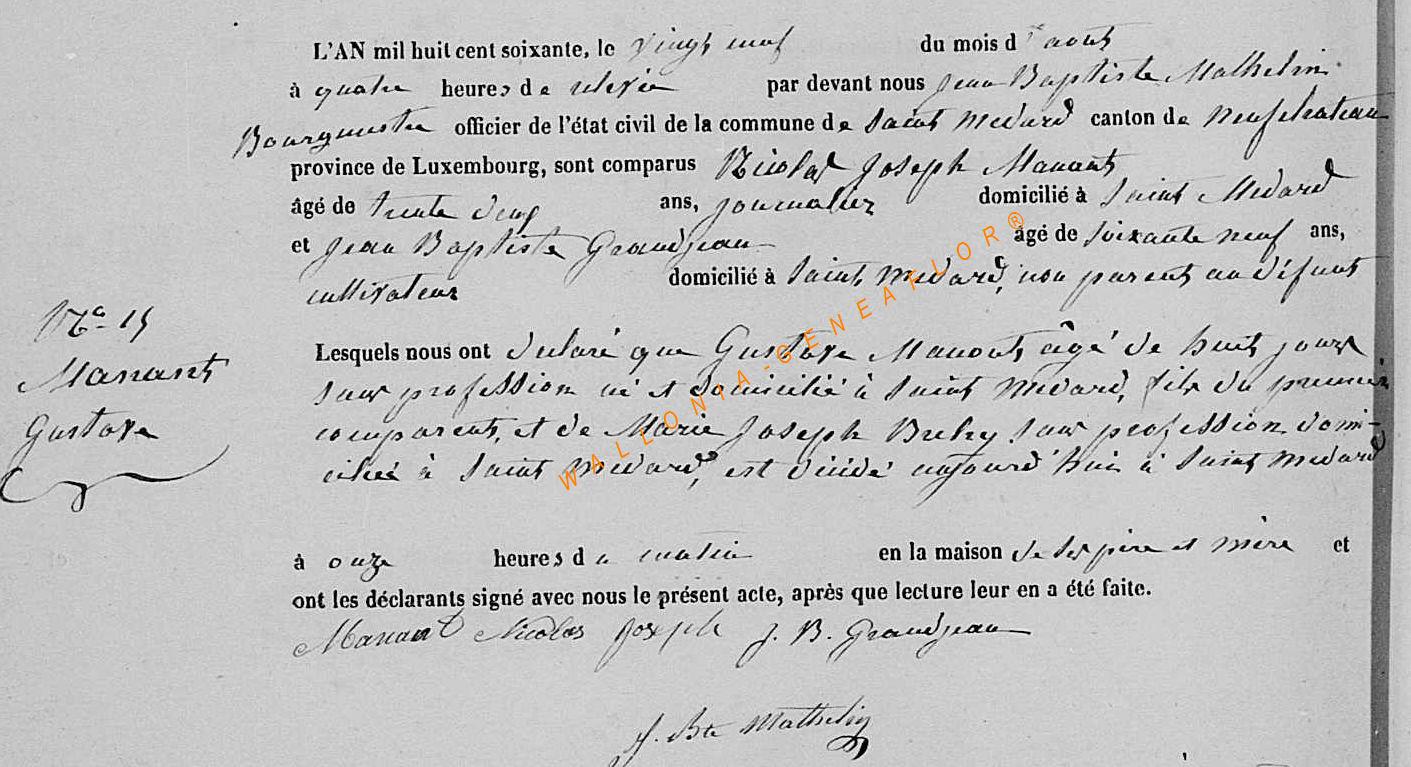 L'AN mil huit cent soixante, le vingt neuf du mois d'août
à quatre heures de relevée par devant nous Jean Baptiste Mathelin
Bourgmestre officier de l'état civil de la commune de Saint Medard canton de Neufchateau
province de Luxembourg, sont comparus Nicolas Joseph Manant
âgé de trente deux ans, journalier domicilié à Saint Medard
et Jean Baptiste Grandjean âgé de soixante neuf ans,
cultivateur domicilié à Saint Medard, non parent au défunt
Lesquels nous ont déclaré que Gustave Manant âgé de huit jours
sans profession né et domicilié à Saint Medard, fils du premier
comparant, et de Marie Joseph sans profession domi-
ciliée à Saint Medard, est décédé aujourd'hui à Saint Medard
à onze heures du matin en la maison de ses père et mère et
ont les déclarants signé avec nous le présent acte, après que lecture leur en a été faite.
Manant Nicolas Joseph J. B. Grandjean
J. Bte Mathelin
No 15
Manant
Gustave
WALLONIA-GENEAFLOR®